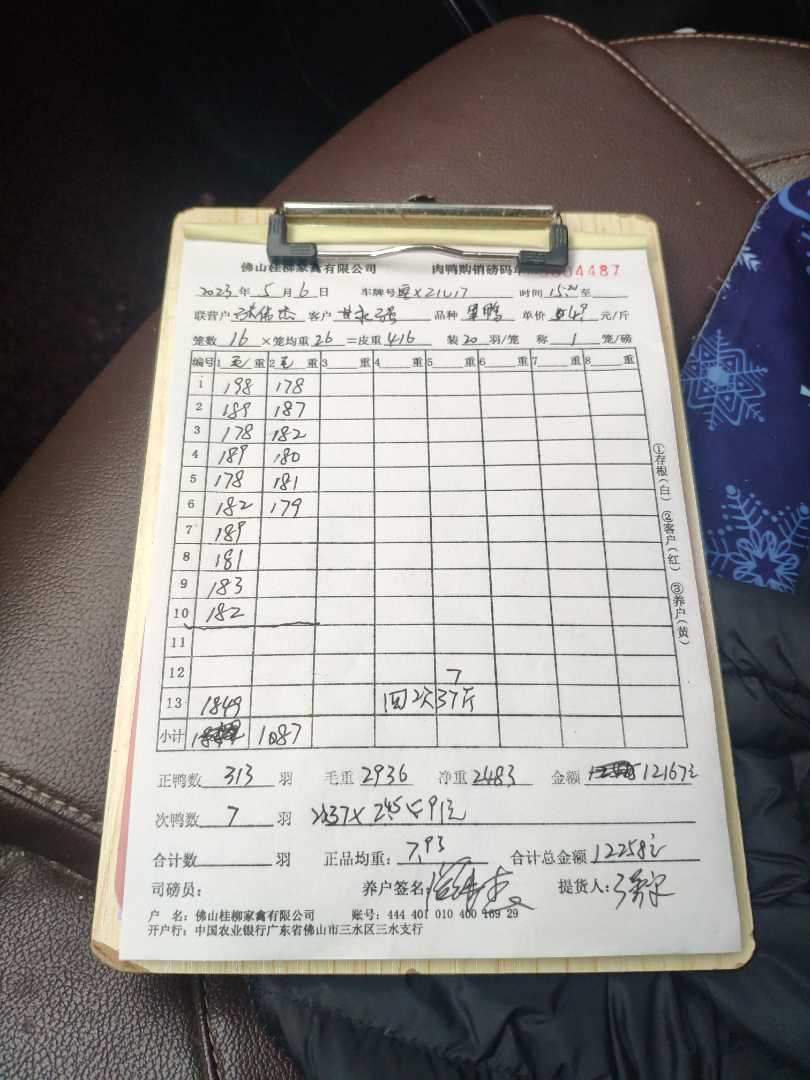 佛山桂柳家禽有限公司 肉鸭购销磅码单 4487
2023 年 5 月 6 日 车牌号 X21U17 时间 15:20 至
联营户 伟杰 客户 甘永强 品种 鸭 单价 4.9 元/斤
笼数 16 ×笼均重 26 =皮重 416 装 20 羽/笼 称 1 笼/磅
编号 1 毛 重 2 毛 重 3 重 4 重 5 重 6 重 7 重 8 重
1 198 178
2 189 187
3 178 182
4 189 180
5 178 181
6 182 179
7 189
8 181
9 183
10 182
11
12 7
13 1849 回次37斤
小计 1087
正鸭数 313 羽 毛重 2936 净重 2483 金额 12167元
次鸭数 7 羽 37× 2.45 = 91元
合计数 羽 正品均重: 7.93 合计总金额 12258元
司磅员: 养户签名: 提货人:
户 名: 佛山桂柳家禽有限公司 账号: 444 401 010 400 169 29
开户行: 中国农业银行广东省佛山市三水区三水支行
①存根(白) ②客户(红) ③养户(黄)